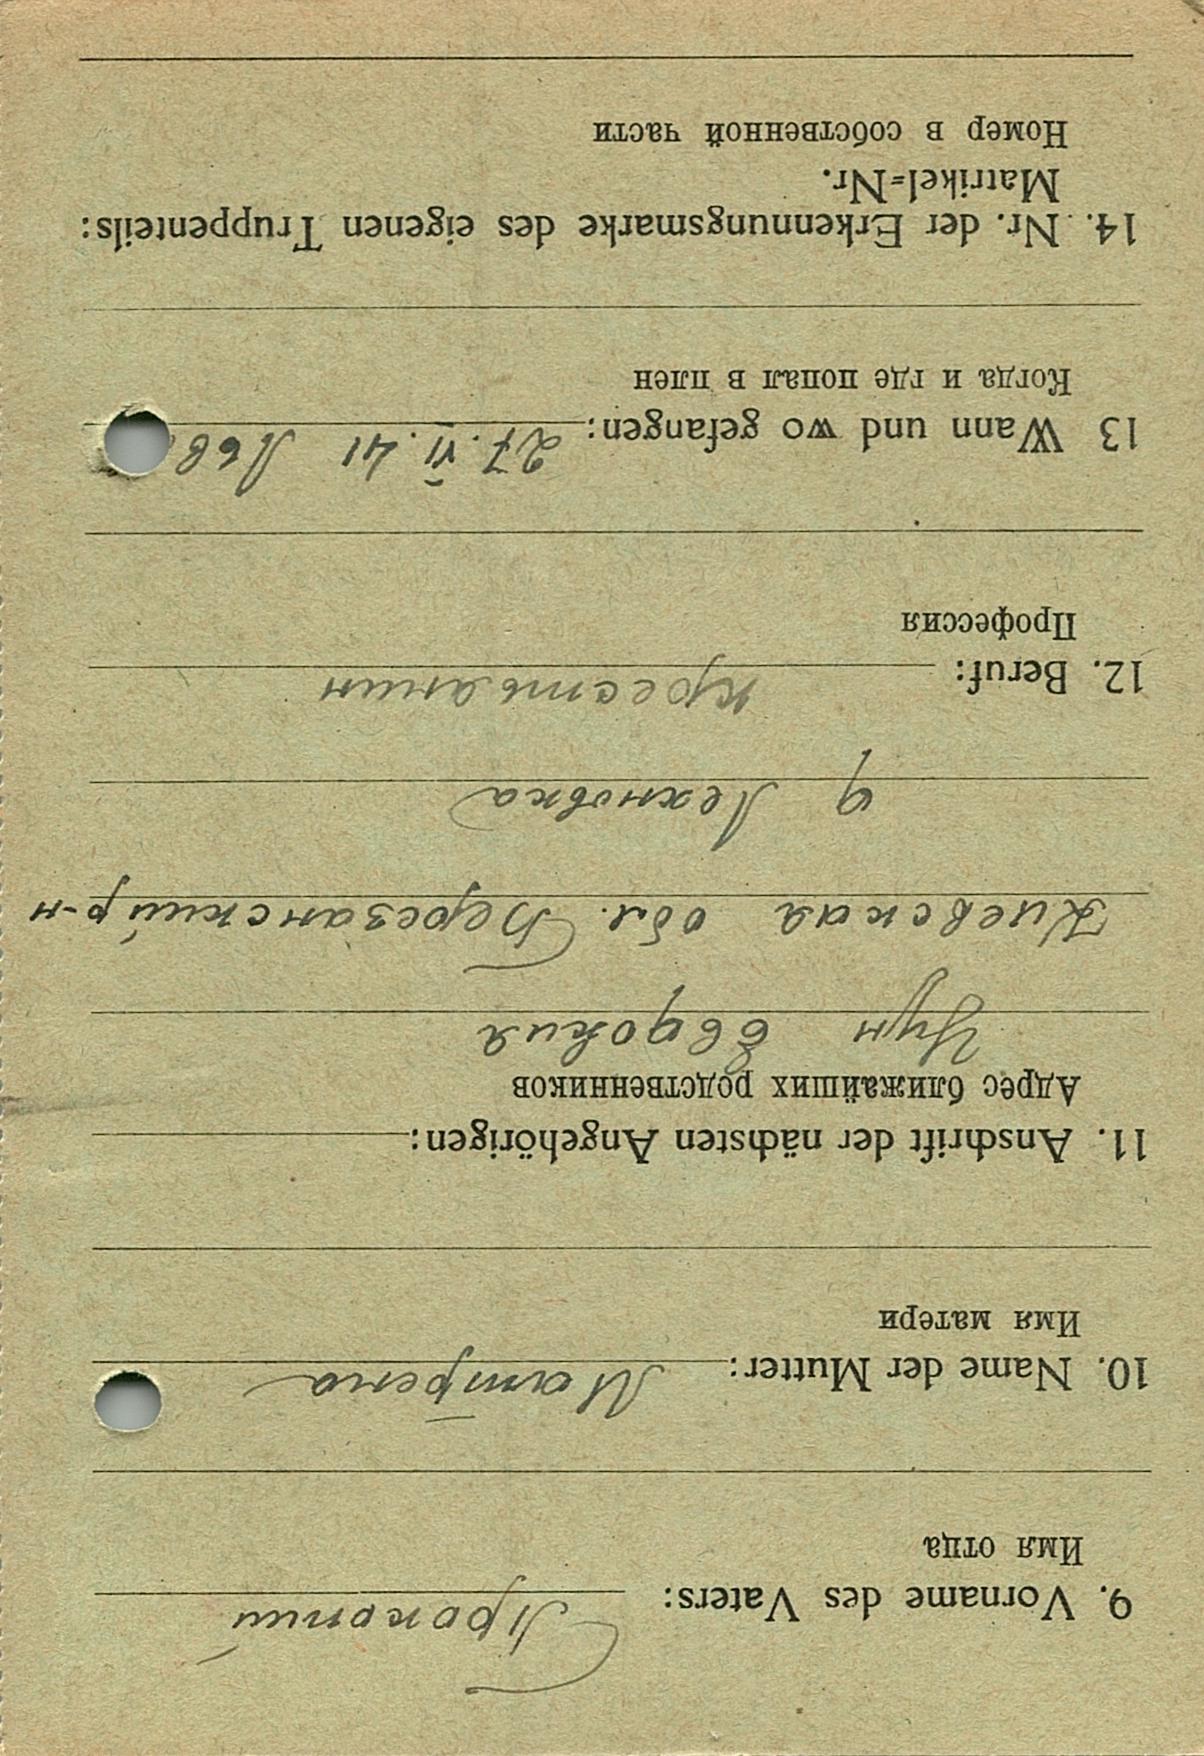 9. Vorname des Vaters: Прокопий
Имя отца
10. Name der Mutter: Матрена
Имя матери
11. Anschrift der nächsten Angehörigen:
Адрес ближайших родственников
Евдокия
Киевская обл. Березанский р-н
д Лехновка
12. Beruf: крестьянин
Профессия
13 Wann und wo gefangen: 27. VI. 41 Льв
Когда и где попал в плен
14. Nr. der Erkennungsmarke des eigenen Truppenteils:
Matrikel=Nr.
Номер в собственной части